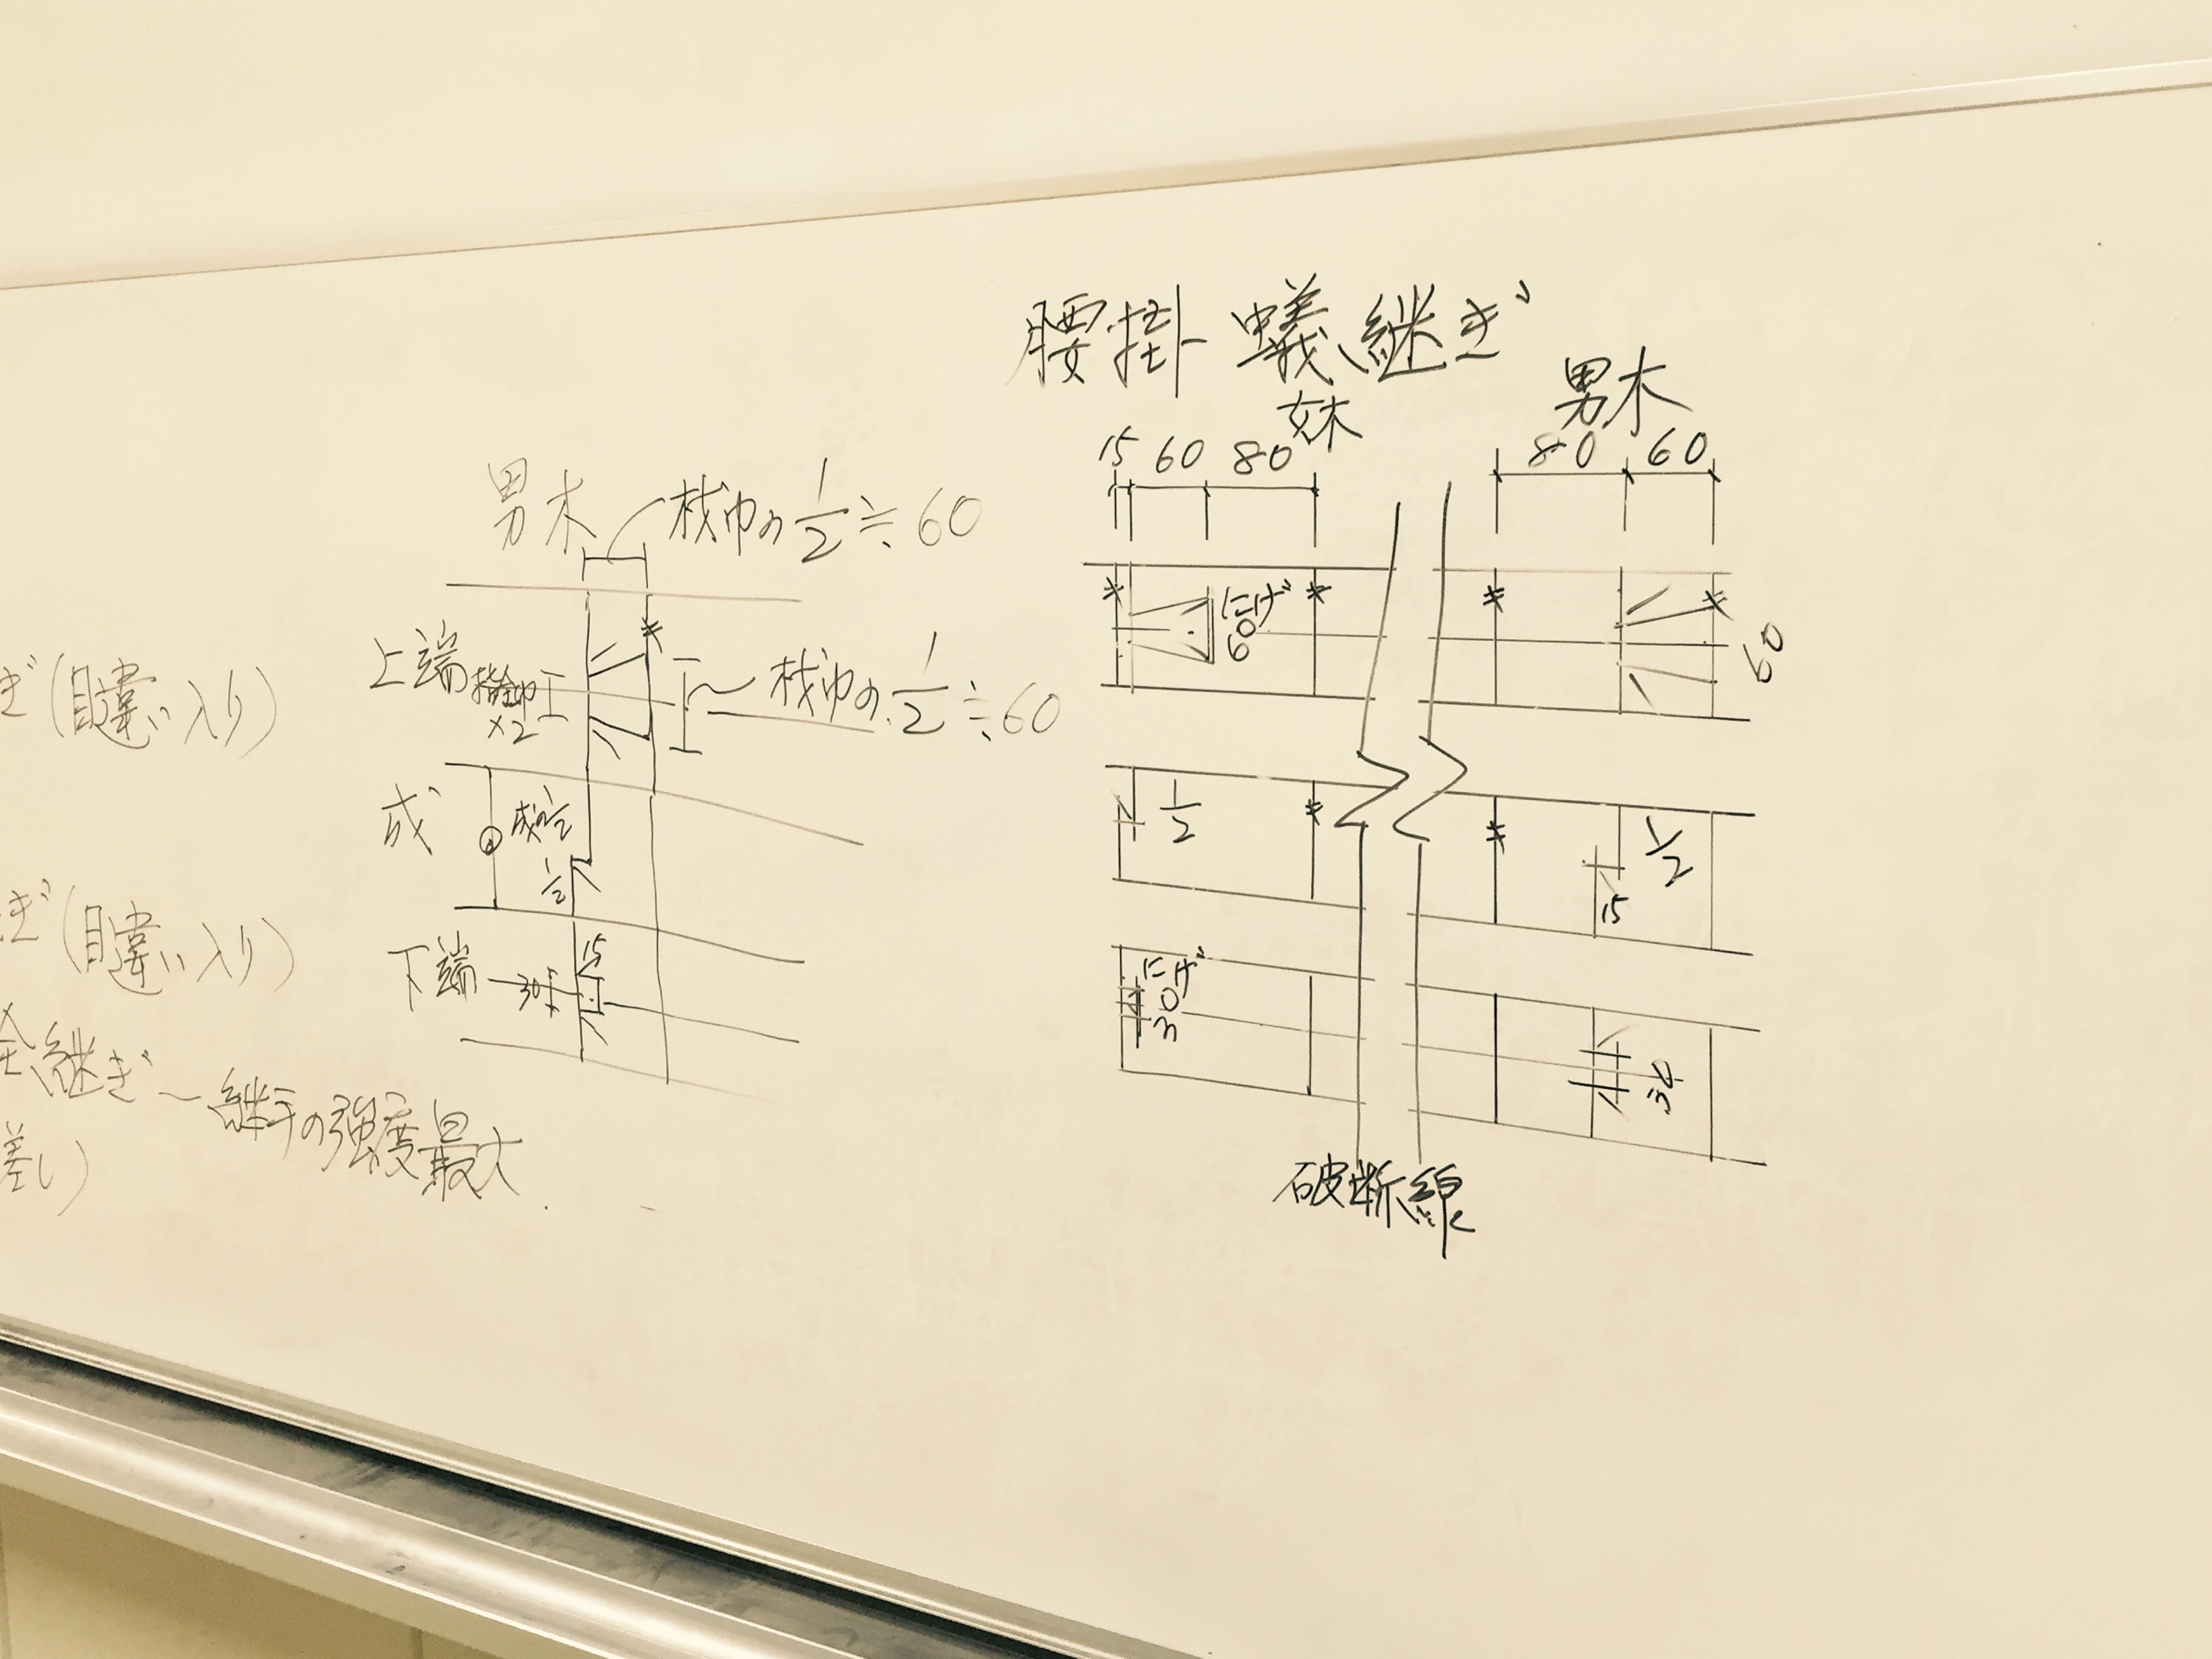 腰掛蟻継ぎ
女木
男木
15 60 80
80 60
にげ
60
60
1/2
1/2
15
にげ
30
30
破断線
男木
材巾の1/2≒60
上端
×2
材巾の1/2≒60
成
成の1/2
1/2
下端
30
15
ぎ(目違い入り)
ぎ(目違い入り)
継ぎ〜継手の強度最大
差し)